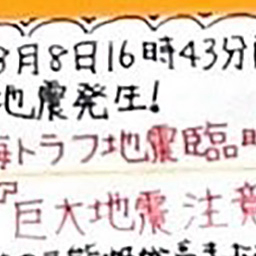 8月8日16時43分
地震発生!
海トラフ地震臨時
『巨大地震注意